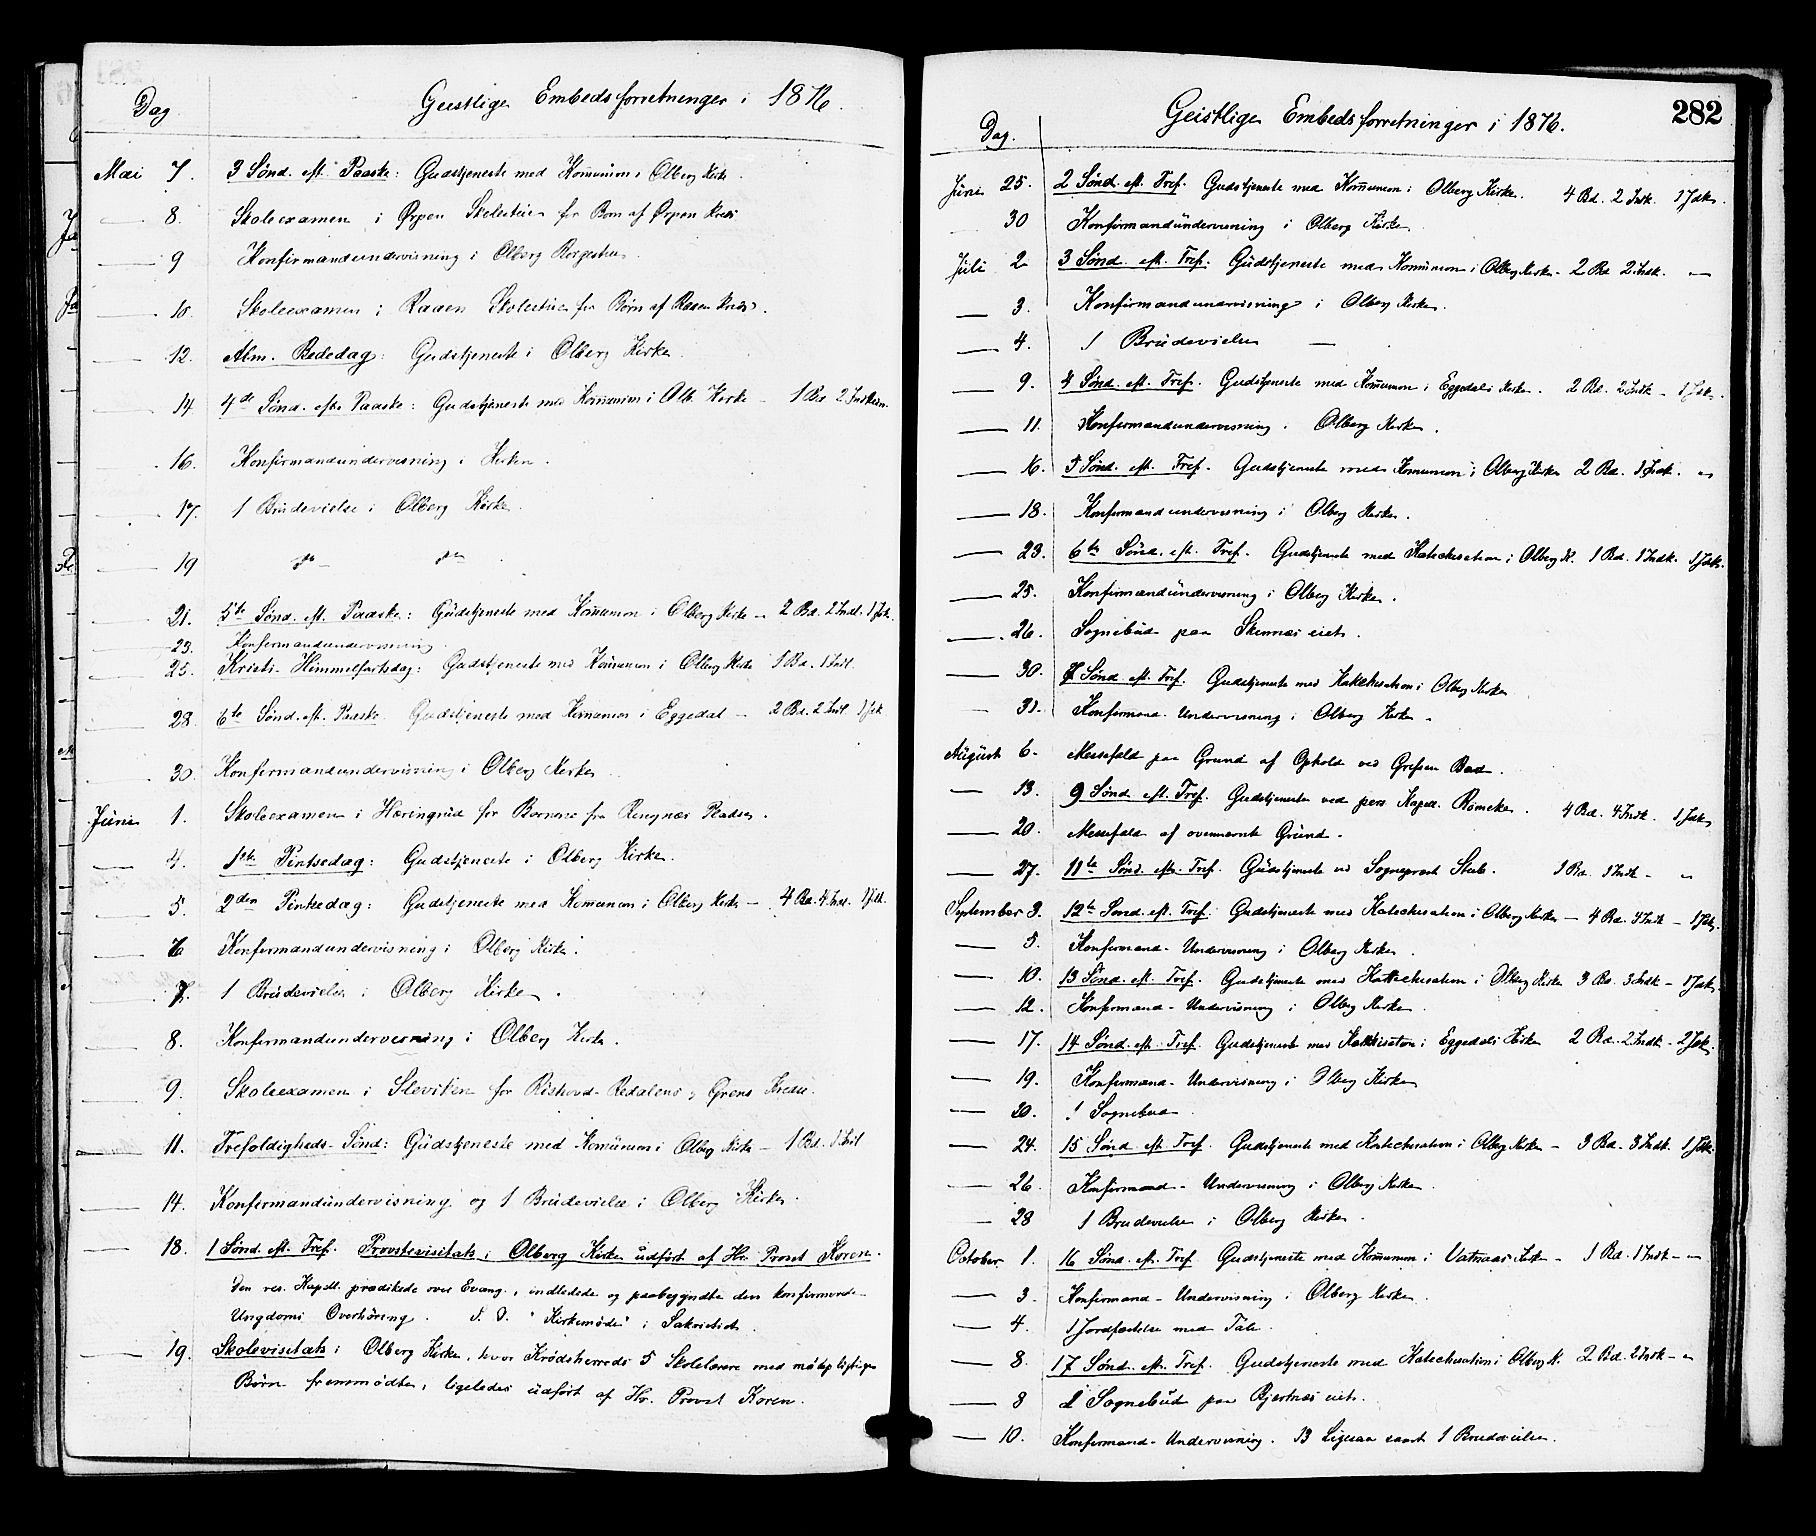 Dag Geistlige Embedsforretninger i 1876.
Mai 7. 3 Sønd. eft. Paaske: Gudstjeneste med Kommunion i Olberg Kirke.
— 8. Skoleexamen i Ørpen Skolestue for Børn af Ørpen Kreds
— 9 Konfirmandundervisning i Olberg
— 10. Skoleexamen i Raaen Skolestue for Børn af Raaen Kreds.
— 12. Alm. Bededag: Gudstjeneste i Olberg Kirke.
— 14 4de Sønd. efter Paaske: Gudstjeneste med Kommunion i Olb. Kirke — 1 Bd 2 Indk.
— 16. Konfirmandundervisning i Kirken.
— 17. 1 Brudevielse i Olberg Kirke.
— 19 do — do —
— 21. 5te Sønd. eft. Paaske: Gudstjeneste med Kommunion i Olberg Kirke — 2 Bd. 2 Indl. 1 Jdk.
— 23. Konfirmandundervisning.
— 25. Kristi Himmelfartsdag: Gudstjeneste med Kommunion i Olberg Kirke 1 Bd. 1 Indl.
— 28. 6te Sønd. eft. Paaske. Gudstjeneste med Kommunion i Eggedal — 2 Bd. 2 Indl. 1 Jdk
— 30. Konfirmandundervisning i Olberg Kirke
Juni 1. Skoleexamen i Haringrud for Børnene fra Pladse.
— 4. 1ste Pintsedag: Gudstjeneste i Olberg Kirke.
— 5. 2den Pintsedag: Gudstjeneste med Kommunion i Olberg Kirke — 4 Bd. 4 Indl. 1 Jdk.
— 6 Konfirmandundervisning i Olberg Kirke.
— 7. 1 Brudevielse i Olberg Kirke.
— 8. Konfirmandundervisning i Olberg Kirke.
— 9. Skoleexamen i Sleviken for Ristvod- Redalens og Grens Kredse.
— 11. Trefoldigheds-Sønd: Gudstjeneste med Kommunion i Olberg Kirke — 1 Bd. 1 Indl
— 14. Konfirmandundervisning og 1 Brudevielse i Olberg Kirke.
— 18. 1 Sønd. eft. Tref. Provstevisitats i Olberg Kirke udført af Hr. Provst Koren.
Den res. Kapell. prædikede over Evang., indledede og paabegyndte den konfirmerede
Ungdoms Overhøring. S. D. "Kirkemøde" i Sakristiet.
— 19. Skolevisitats i Olberg Kirke, hvor Krødsherreds 5 Skolelærere med
Børn fremmødte, ligeledes udført af Hr. Provst Koren.
282
Dag. Geistlige Embedsforretninger i 1876.
Juni 25. 2 Sønd. eft. Tref. Gudstjeneste med Kommunion i Olberg Kirke. 4 Bd. 2 Indk. 1 Jdk.
30 Konfirmandundervisning i Olberg Kirke.
Juli 2 3 Sønd. eft. Tref. Gudstjeneste med Kommunion i Olberg Kirke - 2 Bd 2 Indk. —
— 3. Konfirmandundervisning i Olberg Kirke.
— 4. 1 Brudevielse —
— 9. 4 Sønd. eft. Tref. Gudstjeneste med Kommunion i Eggedals Kirke. 2 Bd. 2 Indk — 1 Jdk.
— 11. Konfirmandundervisning. Olberg Kirke.
— 16. 5 Sønd. eft. Tref. Gudstjeneste med Kommunion i Olberg Kirke 2 Bd. 1 Indk. —
— 18. Konfirmandundervisning i Olberg Kirke.
— 23. 6te Sønd. eft. Tref. Gudstjeneste med Katechisation i Olberg K. 1 Bd. 1 Indk. 1 Jdk.
— 25. Konfirmandundervisning i Olberg Kirke.
— 26. Sognebud paa Skinnes eiet.
— 30. 7 Sønd. eft. Tref. Gudstjeneste med Katekisation i Olberg Kirke
— 31. Konfirmand-Undervisning i Olberg Kirke.
August 6. Messefald paa Grund af Ophold ved Grefsen Bad.
— 13. 9 Sønd. eft. Tref. Gudstjeneste ved pers. Kapell. Rømcke. 4 Bd. 4 Indk. 1 Jdk
— 20. Messefald af ovennævnte Grund.
— 27. 11te Sønd. eft. Tref. Gudstjeneste ved Sogneprest Steb. 1 Bd. 1 Indk — —
September 3. 12te Sønd. eft. Tref. Gudstjeneste med Katechisation i Olberg Kirke — 4 Bd. 4 Indk — 1 Jdk.
— 5. Konfirmand-Undervisning i Olberg Kirke.
— 10. 13 Sønd. eft. Tref. Gudstjeneste med Katechisation i Olberg Kirke 3 Bd. 3 Indk — 1 Jdk.
— 12. Konfirmand-Undervisning i Olberg Kirke.
— 17. 14 Sønd. eft. Tref. Gudstjeneste med Katekisation i Eggedals Kirke 2 Bd. 2 Indk — 2 Jdk.
— 19. Konfirmand-Undervisning i Olberg Kirke
— 20. 1 Sognebud
— 24. 15 Sønd. eft. Tref. Gudstjeneste med Katechisation i Olberg Kirke — 3 Bd. 3 Indk. 1 Jdk.
— 26. Konfirmand-Undervisning i Olberg Kirke.
— 28 1 Brudevielse i Olberg Kirke.
October 1. 16 Sønd. eft. Tref Gudstjeneste med Kommunion i Vatnaas Kirke — 1 Bd. 1 Indk — —
— 3. Konfirmand-Undervisning i Olberg Kirke.
— 4. 1 Jordfæstelse med Tale.
— 8. 17 Sønd. eft. Tref. Gudstjeneste med Katechisation i Olberg K. 2 Bd. 2 Indk — —
— 8 1 Sognebud paa Bjertnes eiet.
— 10. Konfirmand-Undervisning. 13 Ligesaa samt 1 Brudevielse.